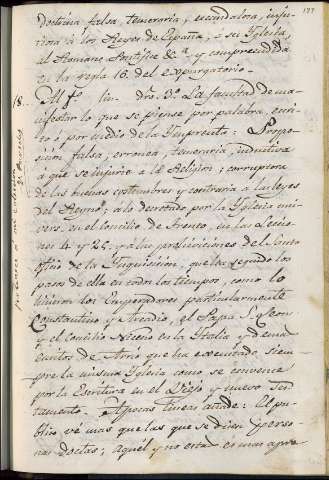 Doctrina falsa, temeraria, y escandalosa, inju-
riosa a los Reyes de España, a sus Iglesia,
al Romano Pontifice &c.ª y comprendida
en la regla 16. del expurgatorio.
18. Al fº lin. dro. 3º La facultad de ma-
nifestar lo que se piense por palabra, escri-
to ó por medio de la Imprenta: Propo-
sicion falsa, erronea, temeraria, inductiva
á que se injurie a la Religion; corruptora
de las buenas costumbres y contraria a las leyes
del Reyno; a lo decretado por la Iglesia uni-
vers. en el Concilio de Trento, en las Sesio-
nes 4 y 25, y a las prohiviciones del Santo
Oficio de la Inquisicion, que ha seguido los
pasos de ella en todos los tiempos, como lo
hicieron los Emperadores particularmente
Constantino y Arcadio, el Papa S. Leon
y el Concilio Niceno en la Italia y demas
escritos de Arrio que ha executado siem-
pre la misma Iglesia como se convence
por la Escritura en el Viejo y nuevo Tes-
tamento. A pocas lineas añade: El pu-
blico vé mas que las que se dicen perso-
nas doctas; aquél y no esta es mas apre